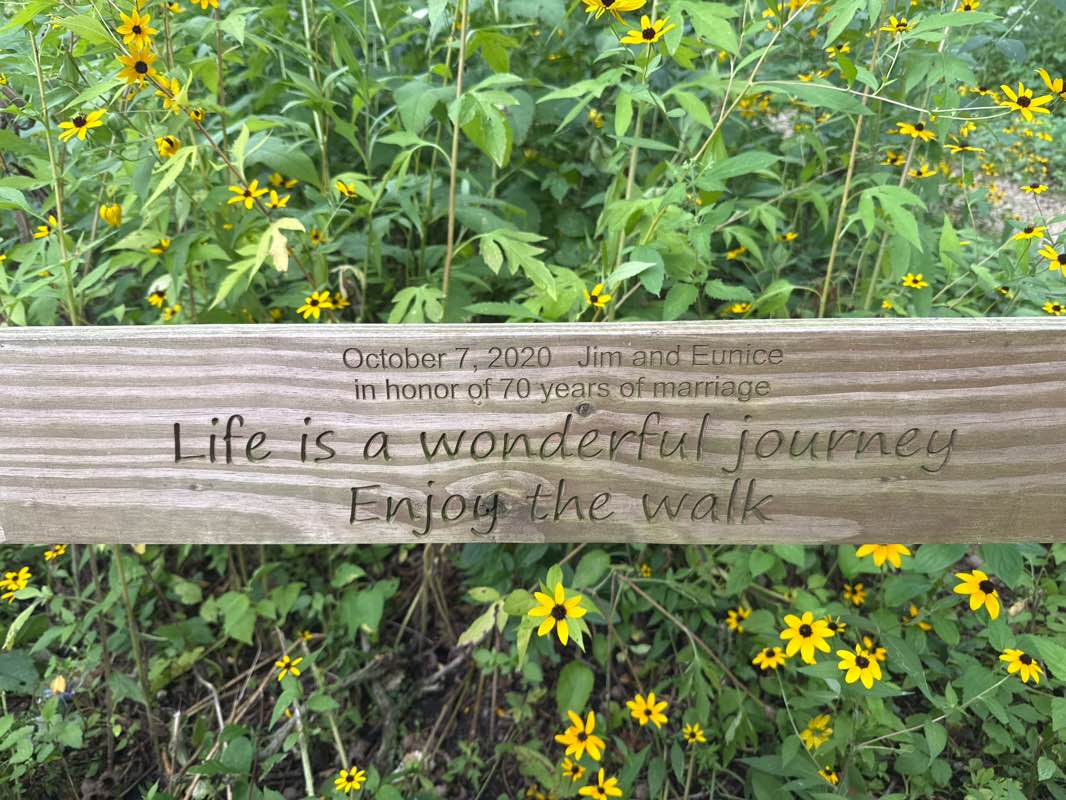 October 7, 2020 Jim and Eunice
in honor of 70 years of marriage
Life is a wonderful journey
Enjoy the walk